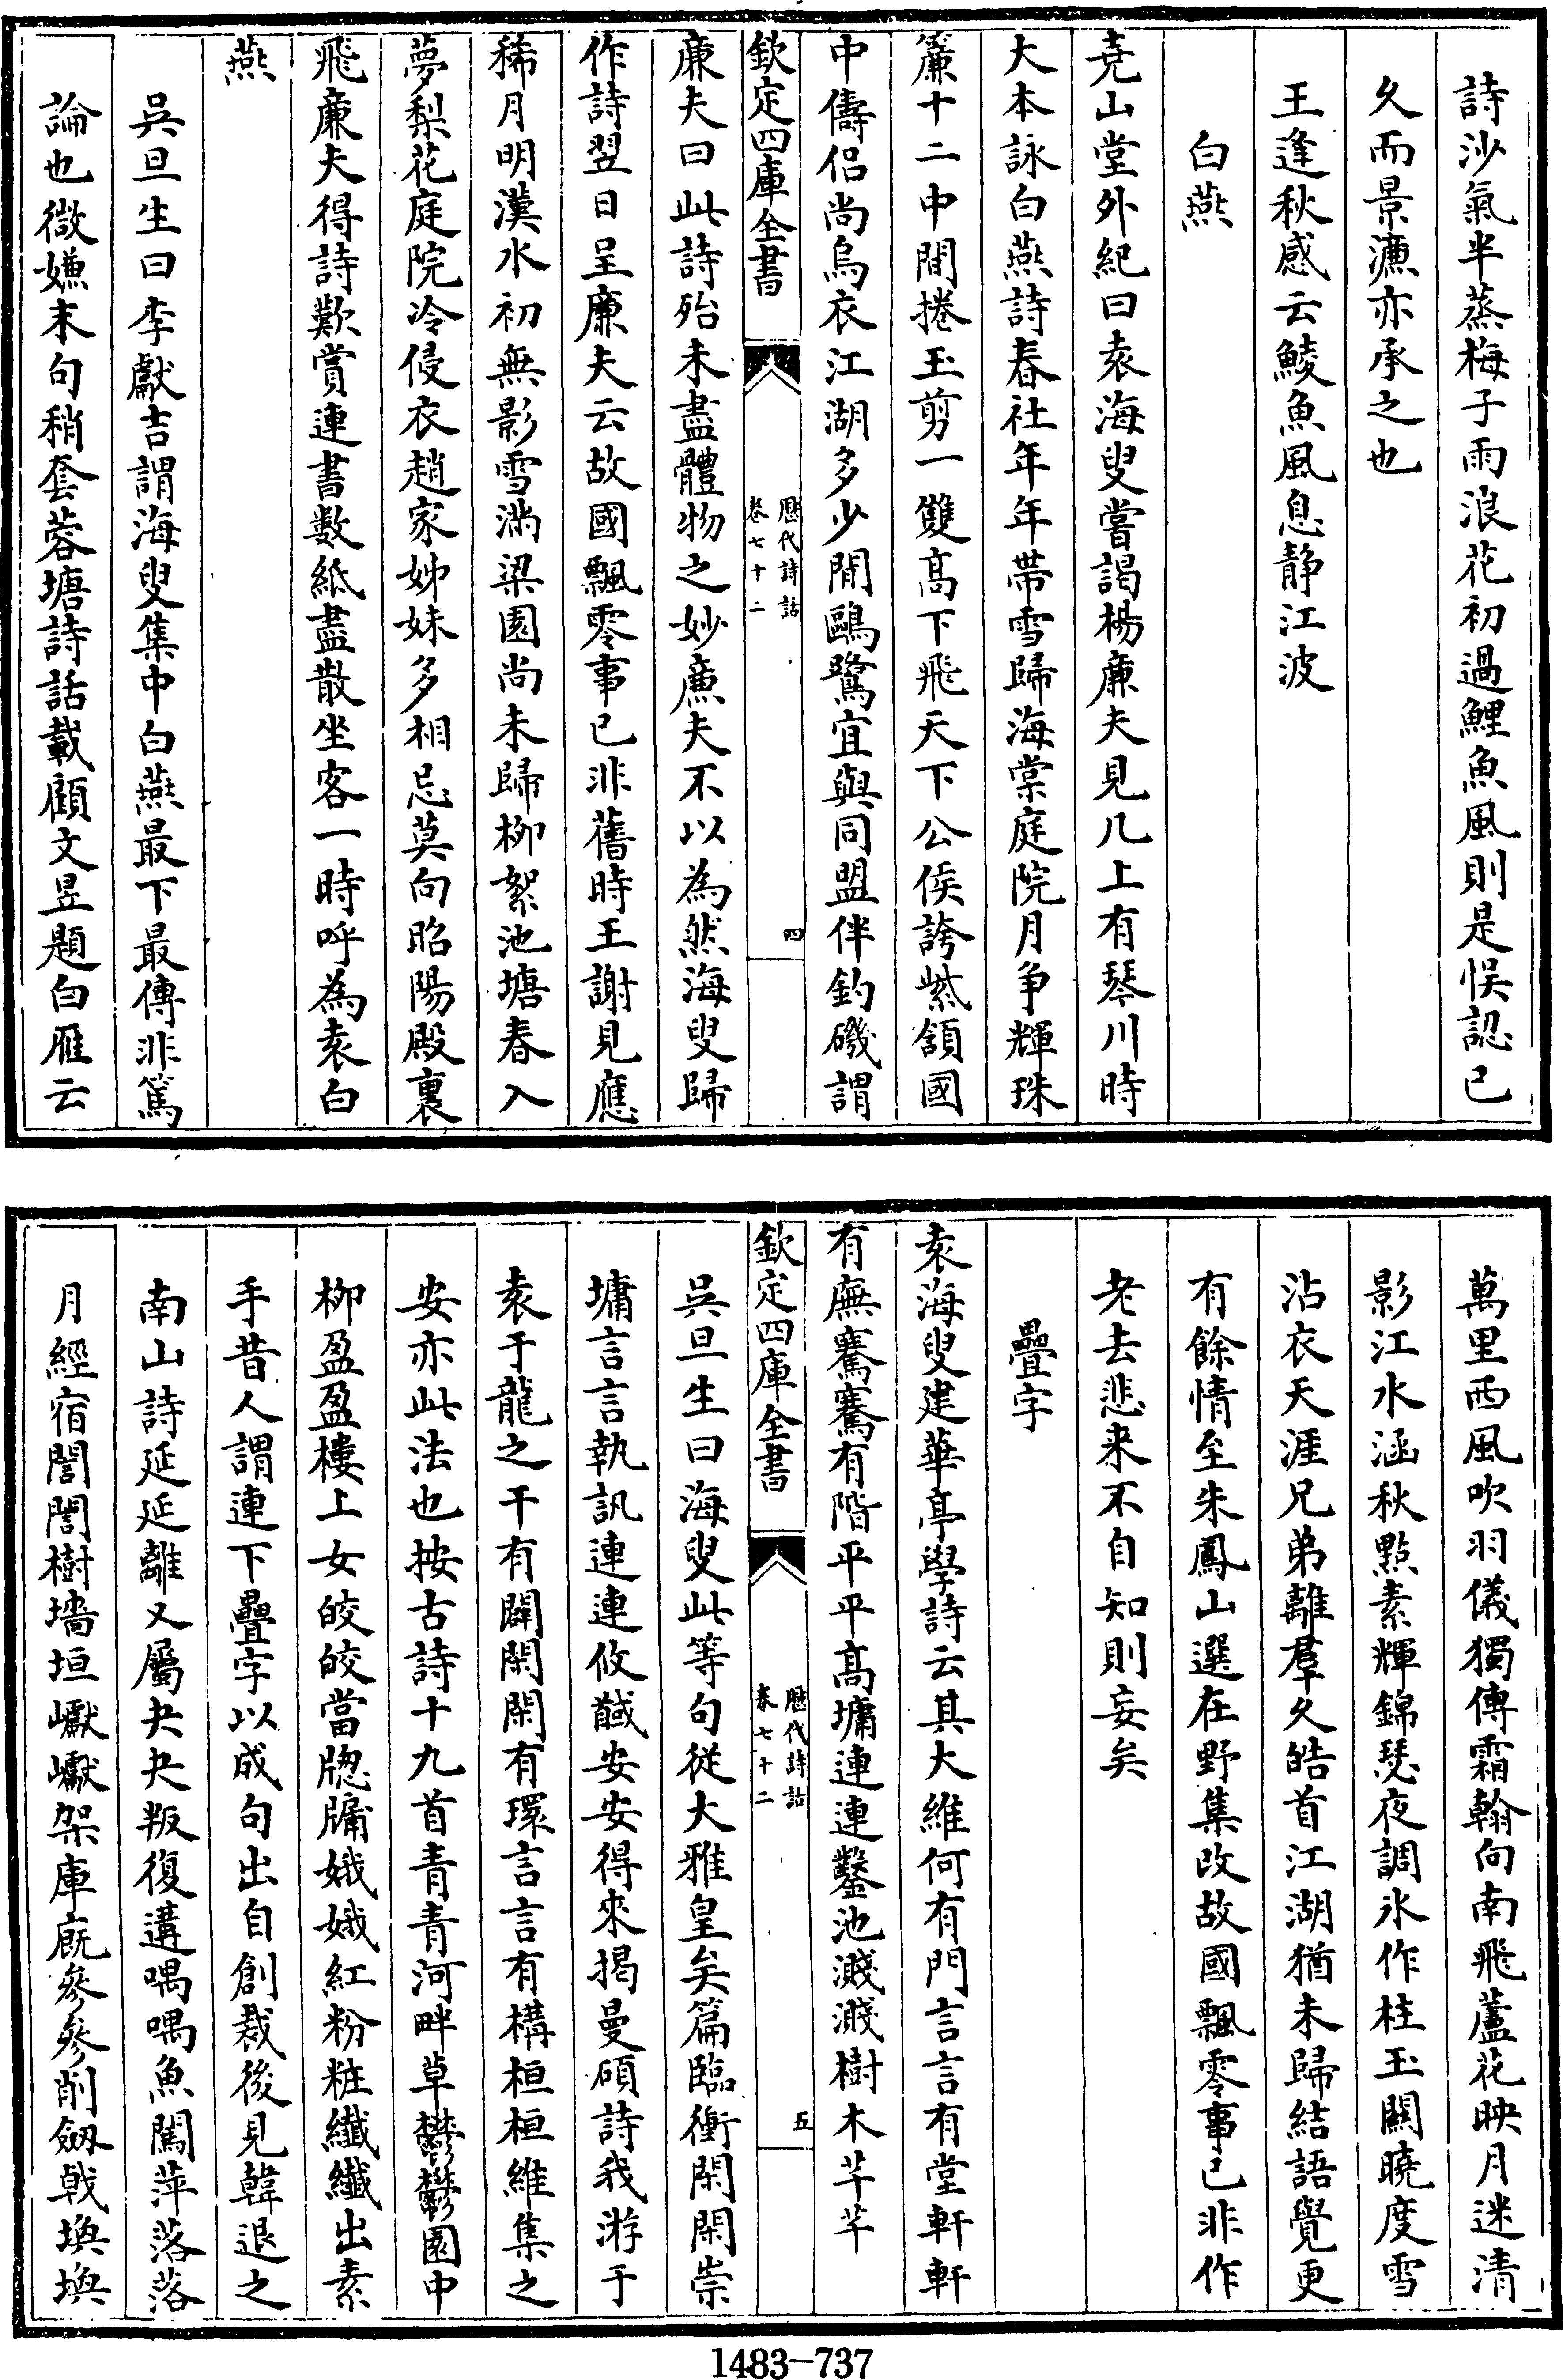 詩沙氣半蒸梅子雨浪花初過鯉魚風則是悮認已
久而景濂亦承之也
王逢秋感云鯪魚風息静江波
白燕
堯山堂外紀曰袁海叟嘗謁楊廉夫見几上有琴川時
大本詠白燕詩春社年年帶雪歸海棠庭院月争輝珠
簾十二中間捲玉剪一雙髙下飛天下公侯誇紫頷國
中儔侣尚烏衣江湖多少閒鷗鷺宜與同盟伴釣磯謂
欽定四庫全書
歴代詩話
卷七十二
四
廉夫曰此詩殆未盡體物之妙廉夫不以為然海叟歸
作詩翌日呈廉夫云故國飄零事已非舊時王謝見應
稀月明漢水初無影雪滿梁園尚未歸柳絮池塘春入
夢梨花庭院冷侵衣趙家姊妹多相忌莫向昭陽殿裏
飛廉夫得詩歎賞連書數紙盡散坐客一時呼為袁白
燕
吳旦生曰李獻吉謂海叟集中白燕最下最傳非篤
論也微嫌末句稍套蓉塘詩話載顧文昱題白雁云
萬里西風吹羽儀獨傳霜翰向南飛蘆花映月迷清
影江水涵秋點素輝錦瑟夜調氷作柱玉闗曉度雪
沾衣天涯兄弟離羣久皓首江湖猶未歸結語覺更
有餘情至朱鳳山選在野集改故國飄零事已非作
老去悲来不自知則妄矣
疊字
袁海叟建華亭學詩云其大維何有門言言有堂軒軒
有廡騫騫有階平平髙墉連連鑿池濺濺樹木芊芊
欽定四庫全書
歴代詩話
卷七十二
五
吳旦生曰海叟此等句從大雅皇矣篇臨衝閑閑崇
墉言言執訊連連攸馘安安得來揭曼碩詩我游于
袁于龍之干有閈閑閑有環言言有構桓桓維集之
安亦此法也按古詩十九首青青河畔草鬱鬱園中
柳盈盈樓上女皎皎當牎牖娥娥紅粉粧纖纖出素
手昔人謂連下疊字以成句出自創裁後見韓退之
南山詩延延離又屬夬夬叛復遘喁喁魚闖萍落落
月經宿誾誾樹墻垣巘巘架庫廐參參削劒戟煥煥
1483-737